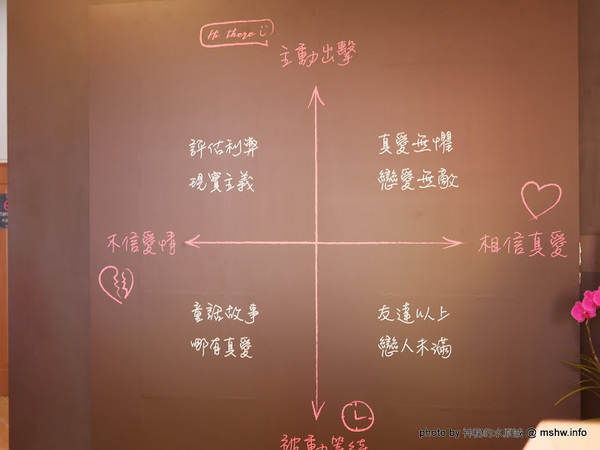 Hi there
主動出擊
評估利弊
現實主義
真愛無懼
戀愛無敵
不信愛情
相信真愛
童話故事
哪有真愛
友達以上
戀人未滿
被動等待
photo by 神秘的水原誠 @ mshw.info